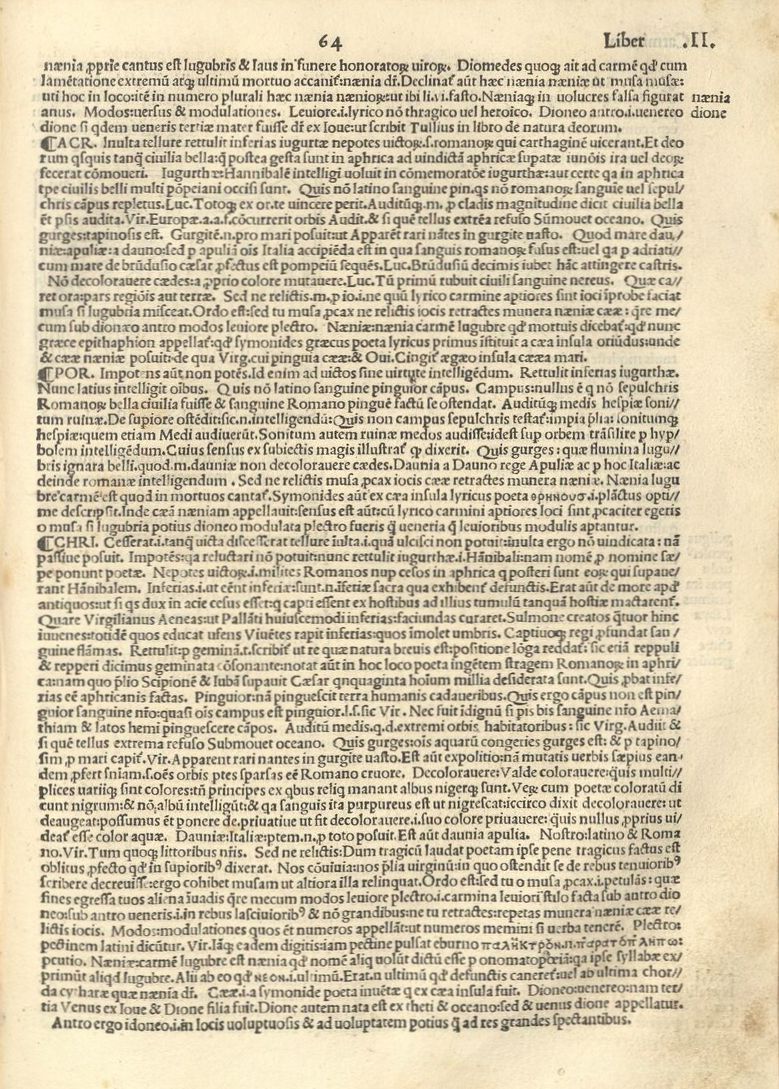 64 Liber .II.
nænia ꝓprie cantus est lugubris & laus in funere honoratoꝝ uiroꝝ. Diomedes quoqꝫ ait ad carmē qđ cum
lamētatione extremū atqꝫ ultimū mortuo accanit᷑: nænia dr̄. Declinat᷑ aūt hæc nænia næniæ ut musa musæ:
uti hoc in loco: itē in numero plurali hæc nænia nænioꝝ: ut ibi li.vi. fasto. Næniaqꝫ in uolucres falsa figurat nænia
anus. Modos: uersus & modulationes. Leuiore .i. lyrico nō thragico uel heroico. Dioneo antro .i. uenereo dione
dione si qdem ueneris tertiæ mater fuisse dr̄ ex Ioue: ut scribit Tullius in libro de natura deorum.
¶ACR. Inulta tellure rettulit inferias iugurtæ nepotes uictoꝝ .s. romanoꝝ qui carthaginē uicerant. Et deo
rum qsquis tanq̄ ciuilia bella: q̄ postea gesta sunt in aphrica ad uindictā aphricæ supatæ iunōis ira uel deoꝝ
fecerat cōmoueri. Iugurthæ: Hannibalē intelligi uoluit in cōmemoratōe iugurthæ: aut certe qa in aphrica
tpe ciuilis belli multi pōpeiani occisi sunt. Quis nō latino sanguine pin. qs nō romanoꝝ sanguīe uel sepul/
chris cāpus repletus. Luc. Totoqꝫ ex or. te uincere perit. Auditūqꝫ m. p cladis magnitudine dicit ciuilia bella
ēt psis audita. Vir. Europæ. a. a. f. cōcurrerit orbis Audit. & si quē tellus extrēa refuso Sūmouet oceano. Quis
gurges: tapinosis est. Gurgitē .n. pro mari posuit: ut Apparēt rari nātes in gurgite uasto. Quod mare dau/
niæ: apuliæ: a dauno: sed p apuliā oīs Italia accipiēda est in qua sanguis romanoꝝ fusus est: uel qa p adriati//
cum mare de brūdusio cæsar ꝓfectus est pompeiū sequēs. Luc. Brūdusiū decimis iubet hāc attingere castris.
Nō decolorauere cædes: a ꝓprio colore mutauere. Luc. Tū primū rubuit ciuili sanguine nereus. Quæ ca//
ret ora: pars regiōis aut terræ. Sed ne relictis. m. p io. i. ne quū lyrico carmine aptiores sint ioci īprobe faciat
musa si lugubria misceat. Ordo est: sed tu musa ꝓcax ne relictis iocis retractes munera næniæ cææ: q̄re me/
cum sub dionæo antro modos leuiore plectro. Næniæ: nænia carmē lugubre qđ mortuis dicebat᷑: qđ nunc
græce epithaphion appellat᷑: qđ symonides græcus poeta lyricus primus īstituit a cæa insula oriūdus: unde
& cææ næniæ posuit: de qua Virg. cui pinguia cææ: & Oui. Cingit᷑ ægæo insula cææa mari.
¶POR. Impotens aut non potēs. Id enim ad uictos sine uirtute intelligēdum. Rettulit inferias iugurthæ.
Nunc latius intelligit oībus. Quis nō latino sanguine pinguior cāpus. Campus: nullus ē q̄ nō sepulchris
Romanoꝝ bella ciuilia fuisse & sanguine Romano pinguē factū se ostendat. Auditūqꝫ medis hespiæ soni//
tum ruinæ. De supiore ostēdit: sic .n. intelligendū: Quis non campus sepulchris testat᷑: impia plia: sonitumqꝫ
hespiæ: quem etiam Medi audiuerūt. Sonitum autem ruinæ medos audisse: idest sup orbem trāsilire p hyp/
bolem intelligēdum. Cuius sensus ex subiectis magis illustrat᷑ qꝫ dixerit. Quis gurges: quæ flumina lugu//
bris ignara belli. quod. m. dauniæ non decolorauere cædes. Daunia a Dauno rege Apuliæ ac p hoc Italiæ: ac
deinde romanæ intelligendum. Sed ne relictis musa ꝓcax iocis cææ retractes munera næniæ. Nænia lugu
bre carmē est quod in mortuos cantat᷑. Symonides aūt ex cæa insula lyricus poeta ΘΡΗΝΟΥC .i. plāctus opti//
me descripsit. Inde cæā næniam appellauit: sensus est aūt: cū lyrico carmini aptiores loci sint ꝓcaciter egeris
o musa si lugubria potius dioneo modulata plectro fueris q̄ ueneria q̄ leuioribus modulis aptantur.
¶CHRI. Cesserat .i. tanq̄ uicta discesserat tellure iulta .i. quā ulcisci non potuit: inulta ergo nō uindicata: nā
passiue posuit. Impotēs: qa reluctari nō potuit: nunc rettulit iugurthæ .i. Hānibali: nam nomē p nomine sæ/
pe ponunt poetæ. Nepotes uictoꝝ .i. milites Romanos nup cesos in aphrica q posteri sunt eoꝝ qui supaue/
rant Hānibalem. Inferias .i. ut cēnt inferiæ: sunt .n. īferiæ sacra qua exhibent᷑ defunctis. Erat aūt de more apđ
antiquos: ut si qs dux in acie cesus esset: q capti essent ex hostibus ad illius tumulū tanquā hostiæ mactarent᷑.
Quare Virgilianus Aeneas: ut Pallāti huiuscemodi inferias: faciundas curaret. Sulmone creatos q̄tuor hinc
iuuenes: totidē quos educat ufens Viuētes rapit inferias: quos imolet umbris. Captiuoqꝫ regi pfundat san/
guine flāmas. Rettulit: p geminā .t. scribit᷑ ut re quæ natura breuis est: positione lōga reddat᷑: sic etiā reppuli
& repperi dicimus geminata cōsonante: notat aūt in hoc loco poeta ingētem stragem Romanoꝝ in aphri/
ca: nam quo p̄lio Scipionē & Iubā supauit Cæsar qnquaginta hoīum millia desiderata sunt. Quis ꝓbat infe/
rias eē aphricanis factas. Pinguior: nā pinguescit terra humanis cadaueribus. Quis ergo cāpus non est pin/
guior sanguine nr̄o: quasi oīs campus est pinguior .s. sic Vir. Nec fuit īdignū si pis bis sanguine nr̄o Aema/
thiam & latos hemi pinguescere cāpos. Auditū medis. q.d. extremi orbis habitatoribus: sic Virg. Audiit &
si quē tellus extrema refuso Submouet oceano. Quis gurges: oīs aquarū congeries gurges est: & p tapino/
sim p mari capit᷑. Vir. Apparent rari nantes in gurgite uasto. Est aūt expolitio: nā mutatis uerbis sæpius ean-
dem ꝓfert sn̄iam .s. oēs orbis ptes sparsas eē Romano cruore. Decolorauere: Valde colorauere: quis multi//
plices uariiqꝫ sint colores: tn̄ principes ex qbus reliq manant albus nigerqꝫ sunt. Veꝝ cum poetæ coloratū di
cunt nigrum: & nō albū intelligūt: & qa sanguis ita purpureus est ut nigrescat: iccirco dixit decolorauere: ut
deaugeat: possumus ēt ponere de. priuatiue ut sit decolorauere .i. suo colore priuauere: quis nullus ꝓprius ui/
deat᷑ esse color aquæ. Dauniæ: Italiæ: ptem .n. p toto posuit. Est aūt daunia apulia. Nostro: latino & Roma
no. Vir. Tum quoqꝫ littoribus nr̄is. Sed ne relictis: Dum tragicū laudat poetam ipse pene tragicus factus est
oblitus ꝓfecto qđ in supioribꝰ dixerat. Nos cōuiuia: nos p̄lia virginū: in quo ostendit se de rebus tenuioribꝰ
scribere decreuisse: ergo cohibet musam ut altiora illa relinquat. Ordo est: sed tu o musa ꝓcax .i. petulās: quæ
fines egressa tuos ali: na īuadis q̄re mecum modos leuiore plectro .i. carmina leuiori stilo facta sub antro dio
neo: sub antro ueneris .i. in rebus lasciuioribꝰ & nō grandibus: ne tu retractes: repetas munera næniæ cææ re/
lictis iocis. Modos: modulationes quos ēt numeros appellāt: ut numeros memini si uerba tenerē. Plectro:
pectinem latini dicūtur. Vir. Iāqꝫ eadem digitis: iam pectine pulsat eburno
pcutio. Næniæ: carmē lugubre est nænia qđ nomē aliq uolūt dictū esse p onomatopœiā: qa ipse syllabæ ex/
primūt aliqđ lugubre. Alii ab eo qđ ΝΕΟΝ .i. ultimū. Erat .n. ultimū qđ defunctis caneret᷑: uel ab ultima chor//
da cytharæ quæ nænia dr̄. Cææ .i. a symonide poeta inuētæ q ex cæa insula fuit. Dioneo: uenereo: nam ter/
tia Venus ex Ioue & Dione filia fuit. Dione autem nata est ex theti & oceano: sed & uenus dione appellatur.
Antro ergo idoneo .i. in locis uoluptuosis & ad uoluptatem potius q̄ ad res grandes spectantibus.